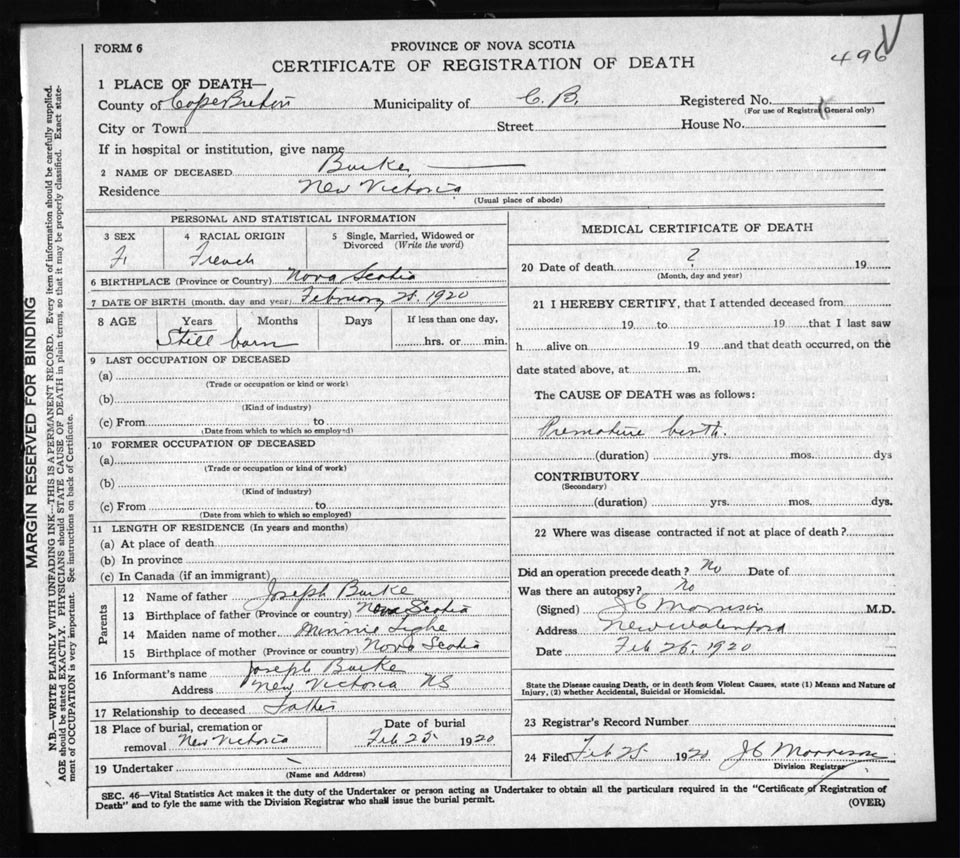 FORM 6
PROVINCE OF NOVA SCOTIA
496
CERTIFICATE OF REGISTRATION OF DEATH
1 PLACE OF DEATH—
County of Cape Breton Municipality of C. B. Registered No.
(For use of Registrar General only)
City or Town Street House No.
If in hospital or institution, give name
2 NAME OF DECEASED Burke
Residence New Victoria
(Usual place of abode)
PERSONAL AND STATISTICAL INFORMATION
3 SEX 4 RACIAL ORIGIN 5 Single, Married, Widowed or
Divorced (Write the word)
F. French
6 BIRTHPLACE (Province or Country) Nova Scotia
7 DATE OF BIRTH (month, day and year) February 25. 1920
8 AGE Years Months Days If less than one day,
Still born hrs. or min.
9 LAST OCCUPATION OF DECEASED
(a)
(Trade or occupation or kind or work)
(b)
(Kind of industry)
(c) From to
(Date from which to which so employed)
10 FORMER OCCUPATION OF DECEASED
(a)
(Trade or occupation or kind of work)
(b)
(Kind of industry)
(c) From to
(Date from which to which so employed)
11 LENGTH OF RESIDENCE (In years and months)
(a) At place of death
(b) In province
(c) In Canada (if an immigrant)
Parents
12 Name of father Joseph Burke
13 Birthplace of father (Province or country) Nova Scotia
14 Maiden name of mother Minnie
15 Birthplace of mother (Province or country) Nova Scotia
16 Informant's name Joseph Burke
Address New Victoria NS
17 Relationship to deceased Father
18 Place of burial, cremation or Date of burial
removal New Victoria Feb 25 1920
19 Undertaker
(Name and Address)
MEDICAL CERTIFICATE OF DEATH
20 Date of death ? 19
(Month, day and year)
21 I HEREBY CERTIFY, that I attended deceased from
19 to 19 that I last saw
h alive on 19 and that death occurred, on the
date stated above, at m.
The CAUSE OF DEATH was as follows:
Premature birth.
(duration) yrs. mos. dys
CONTRIBUTORY
(Secondary)
(duration) yrs. mos. dys.
22 Where was disease contracted if not at place of death?
Did an operation precede death? No Date of
Was there an autopsy? No
(Signed) J C Morrison M.D.
Address New Waterford
Date Feb 25, 1920
State the Disease causing Death, or in death from Violent Causes, state (1) Means and Nature of
Injury, (2) whether Accidental, Suicidal or Homicidal.
23 Registrar's Record Number
24 Filed Feb 25 1920 J C Morrison
Division Registrar
SEC. 46—Vital Statistics Act makes it the duty of the Undertaker or person acting as Undertaker to obtain all the particulars required in the "Certificate of Registration of
Death" and to fyle the same with the Division Registrar who shall issue the burial permit.
(OVER)
MARGIN RESERVED FOR BINDING
N.B.—WRITE PLAINLY WITH UNFADING INK—THIS IS A PERMANENT RECORD. Every item of information should be carefully supplied.
AGE should be stated EXACTLY. PHYSICIANS should STATE CAUSE OF DEATH in plain terms, so that it may be properly classified. Exact state-
ment of OCCUPATION is very important. See instructions on back of Certificate.